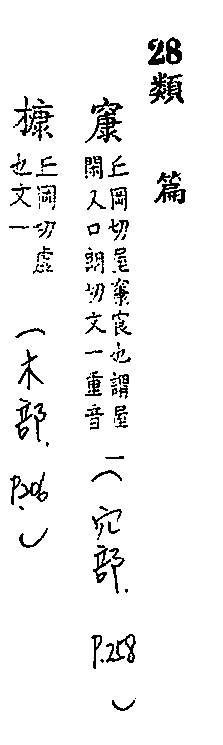 28類篇
丘岡切屋㝩㝗也謂屋
閑又口朗切文一重音
一(穴部.P.258)
槺
丘岡切虛
也文一
(木部.P.206)